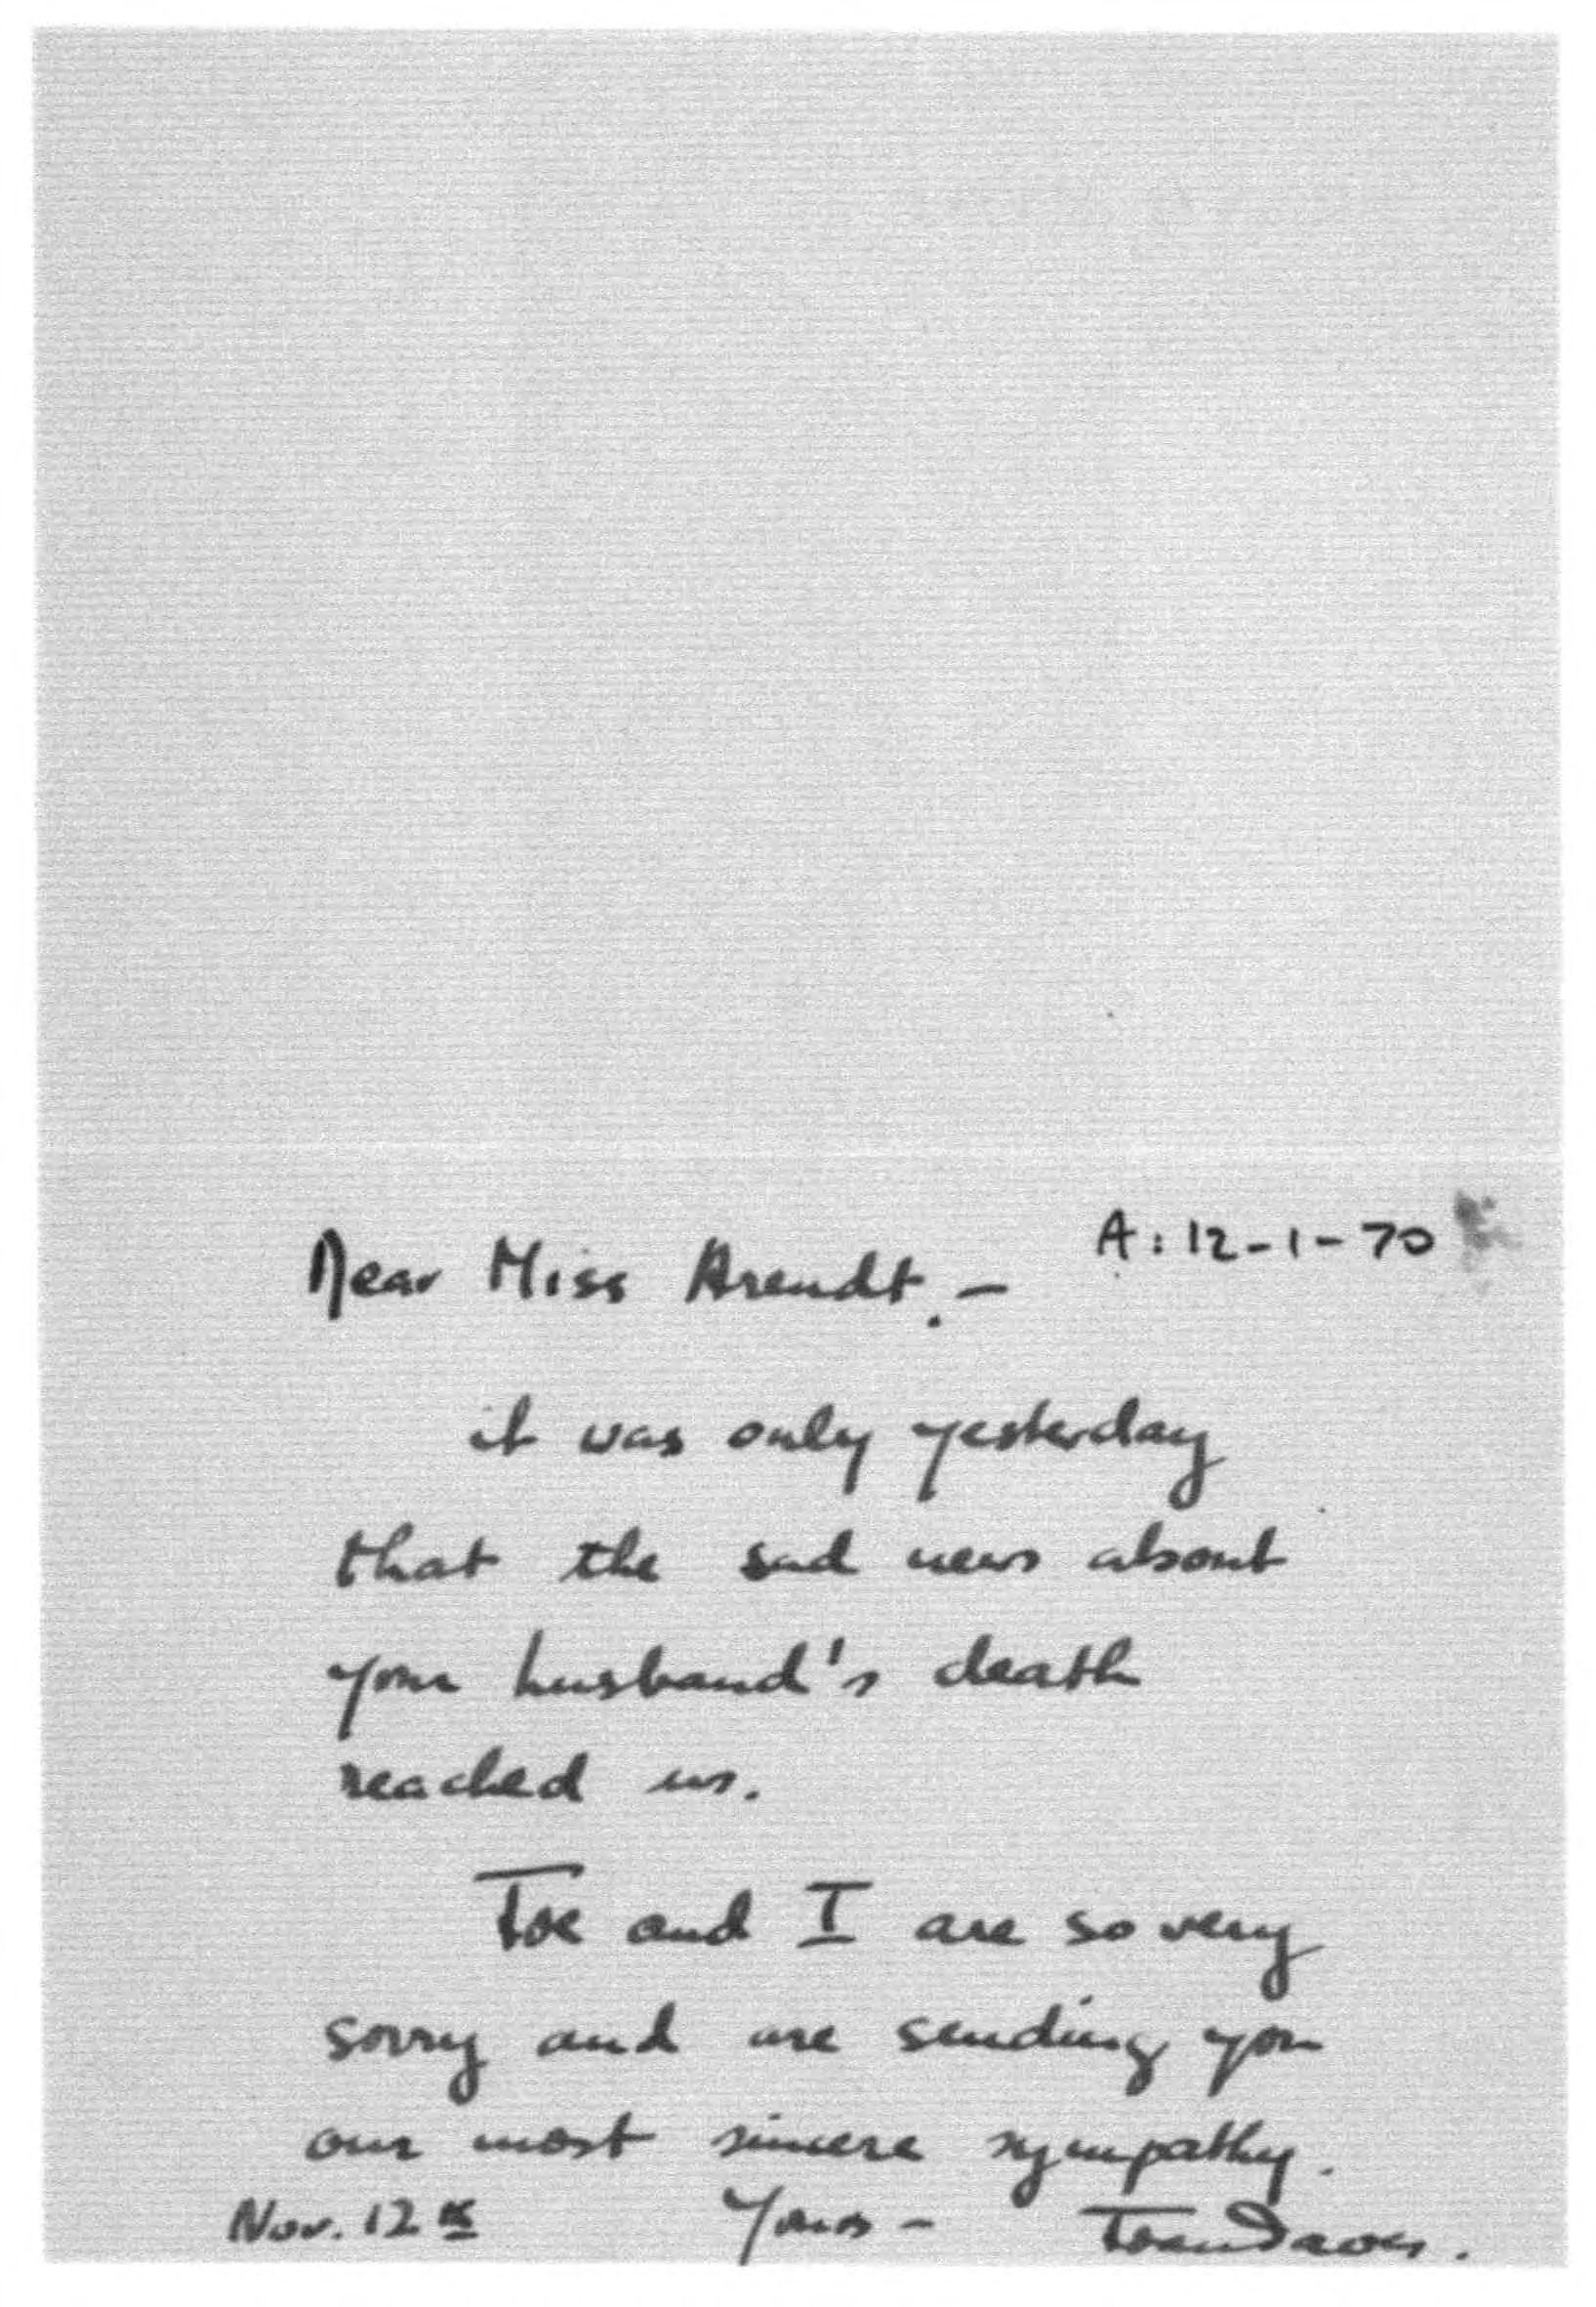 A: 12-1-70
Dear Miss Arendt. -
it was only yesterday
that the sad news about
your husband's death
reached us.
Joe and I are so very
sorry and are sending you
our most sincere sympathy.
Nov. 12th Yours -